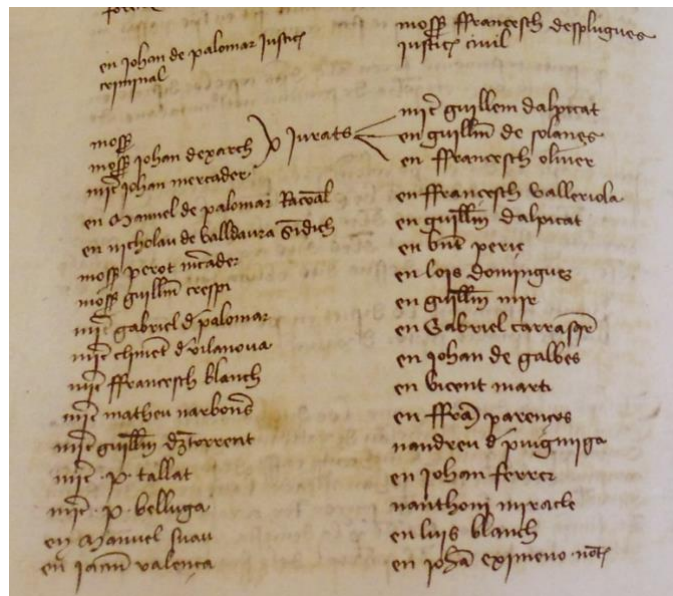 en Johan de palomar Justiç
criminal
moss
moss Johan dexarch
miç Johan mercader
p Jurats
en Manuel de palomar Racoal
en nicholau de valldaura Sindich
moss perot mcader
moss guillm crespi
miç gabriel d palomar
miç chimet d vilanova
miç ffrancesch blanch
miç matheu narbons
miç guillm deztorrent
miç · p · tallat
miç · p · belluga
en Manuel suau
en Jacm valença
moss ffrancesch desplugues
Justiç civil
miç guillem dalpicat
en guillm de solanes
en ffrancesch oliver
en ffrancesch valleriola
en guillm dalpicat
en bnt periç
en lois dominguez
en guillm mir
en Gabriel carrasqr
en Johan de galbes
en vicent marti
en ffra parenços
nandreu d puigmiga
en Johan ferrer
nanthoni miracle
en luis blanch
en Joha eximeno not